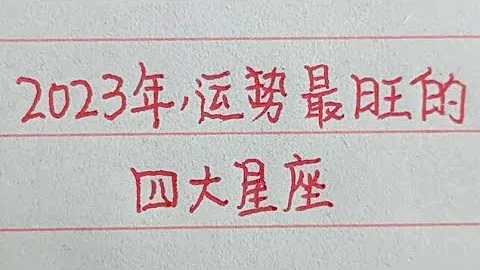 2023年,运势最旺的
四大星座